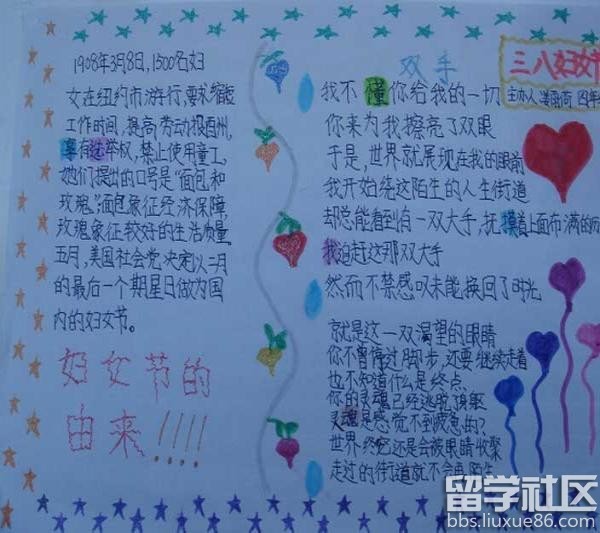 1908年3月8日,1500名妇
女在纽约市游行,要求缩短
工作时间,提高劳动报酬,
享有选举权,禁止使用童工,
她们提出的口号是"面包和
玫瑰"面包象征经济保障,
玫瑰象征较好的生活质量
五月,美国社会党决定以二月
的最后一个期星日做为国
内的妇女节。
妇女节的
由来!!!!
双手
三八妇女节
主办人
我不懂你给我的一切
你来为我擦亮了双眼
于是,世界就展现在我的眼前
我开始绕这陌生的人生街道
却总能看到有一双大手,抚摸着上面布满的
我追赶这那双大手
然而不禁感叹未能换回了时光
就是这一双渴望的眼睛
你不曾停过脚步,还要继续走着
也不知道什么是终点
你的灵魂已经逃脱躯
灵魂是感觉不到疲惫的?
世界终究还是会被眼睛收聚
走过的街道就不会再陌生
留学社区
bbs.liuxue86.com